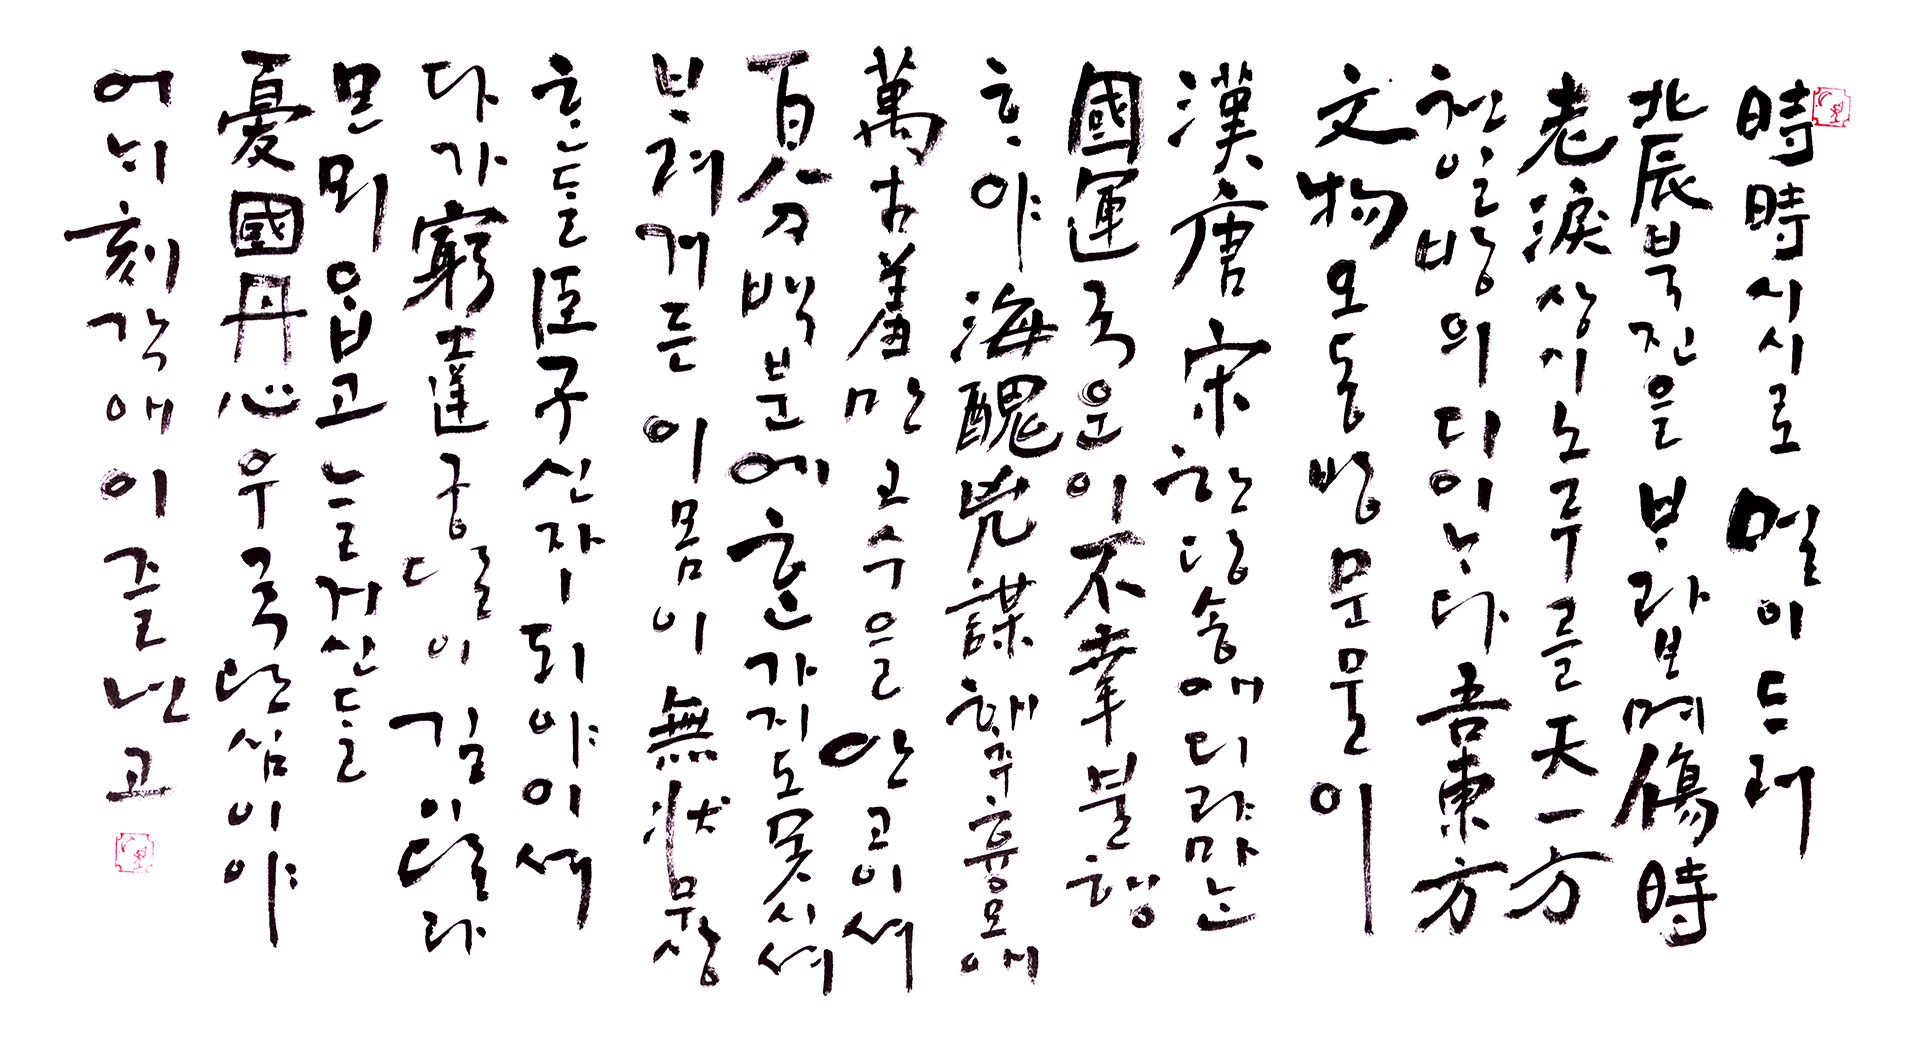 時時시시로 멀이 드러
北辰북진을 ᄇᆞ라보며 傷時
老淚상시노루를 天一方
천일방의 디이ᄂᆞ다 吾東方
文物오동방문물이
漢唐宋한당송애 디랴마ᄂᆞᆫ
國運국운이 不幸불행
ᄒᆞ야 海醜兇謀해추흉모애
萬古羞만고수을 안고이셔
百分백분에 ᄒᆞᆫ가지도 못시셔
ᄇᆞ려거든 이몸이 無狀무상
ᄒᆞᆫᄃᆞᆯ 臣子신자ㅣ되야이셔
다가 窮達궁달이 길이달라
몬뫼ᄋᆞᆸ고 늘거신ᄃᆞᆯ
憂國丹心우국단심이야
어ᄂᆡ 刻각애 이즐넌고